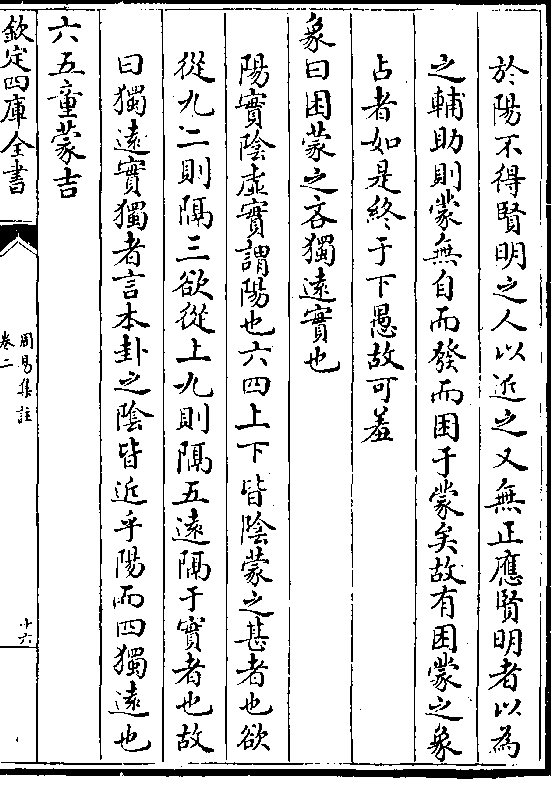 於陽不得賢明之人以近之又無正應賢明者以為
之輔助則蒙無自而發而困于蒙矣故有困蒙之象
占者如是終于下愚故可羞
象曰困蒙之吝獨遠實也
陽實陰虛實謂陽也六四上下皆陰蒙之甚者也欲
從九二則隔三欲從上九則隔五遠隔于實者也故
曰獨遠實獨者言本卦之陰皆近乎陽而四獨遠也
六五童蒙吉
欽定四庫全書
周易集註
卷二
十六